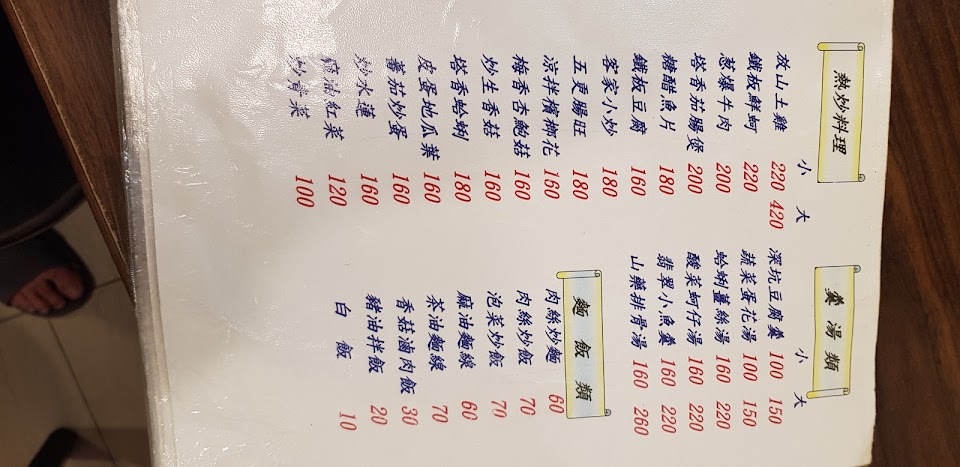 熱炒料理
小 大
放山土雞 220 420
鐵板鮮蚵 220
蔥爆牛肉 200
塔香茄腸煲 200
糖醋魚片 180
鐵板豆腐 160
客家小炒 180
五更腸旺 180
涼拌檳榔花 160
梅香杏鮑菇 160
炒生香菇 160
塔香蛤蜊 180
皮蛋地瓜葉 160
蕃茄炒蛋 160
炒水蓮 160
麻油紅菜 120
炒青菜 100
羹湯類
小 大
深坑豆腐羹 100 150
蔬菜蛋花湯 100 150
蛤蜊薑絲湯 160 220
酸菜蚵仔湯 160 220
翡翠小魚羹 160 220
山藥排骨湯 160 260
麵飯類
肉絲炒麵 60
肉絲炒飯 70
泡菜炒飯 70
麻油麵線 60
茶油麵線 70
香菇滷肉飯 30
豬油拌飯 20
白飯 10